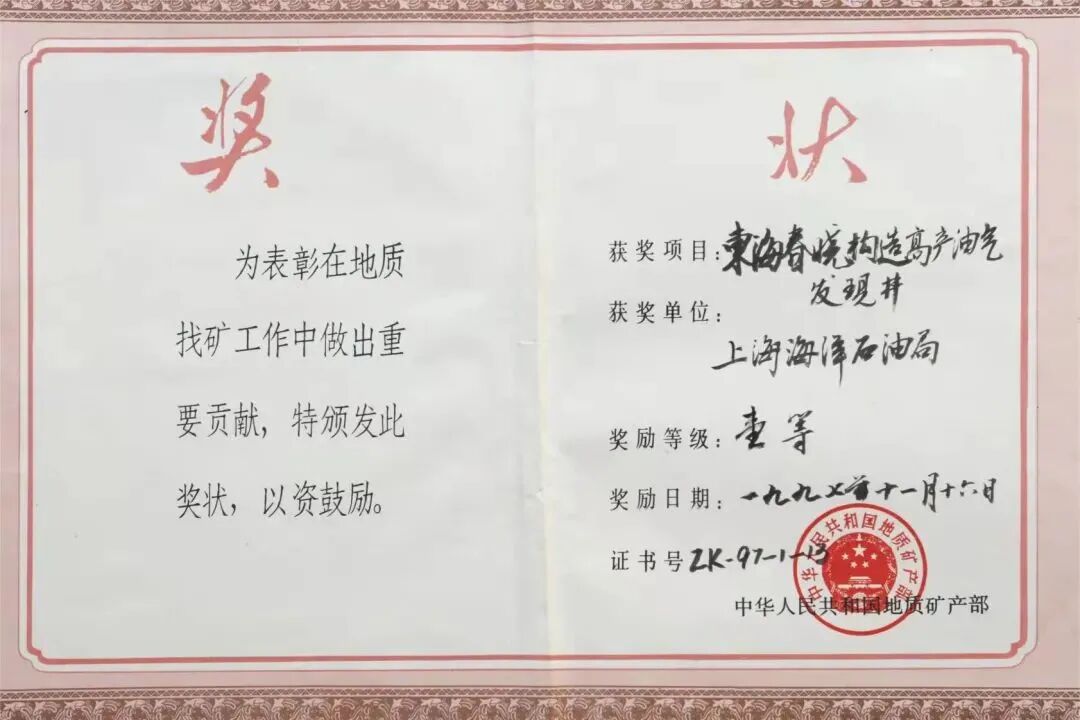 奖状
为表彰在地质
找矿工作中做出重
要贡献，特颁发此
奖状，以资鼓励。
获奖项目：東海春晓构造高产油气
发现井
获奖单位：
上海海洋石油局
奖励等级：壹等
奖励日期：一九九七年十一月十六日
证书号 ZK-97-1-13
中华人民共和国地质矿产部
中华人民共和国地质矿产部